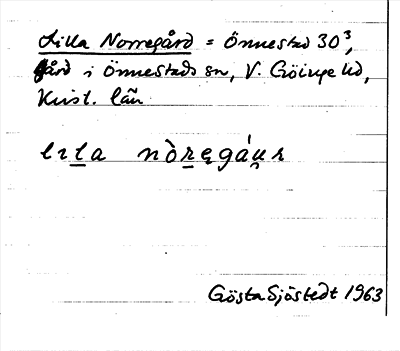 Lilla Norregård = Önnestad 30³,
gård i Önnestads sn, V. Göinge hd,
Krist. län
lɪla nòregáu̯r
Gösta Sjöstedt 1963